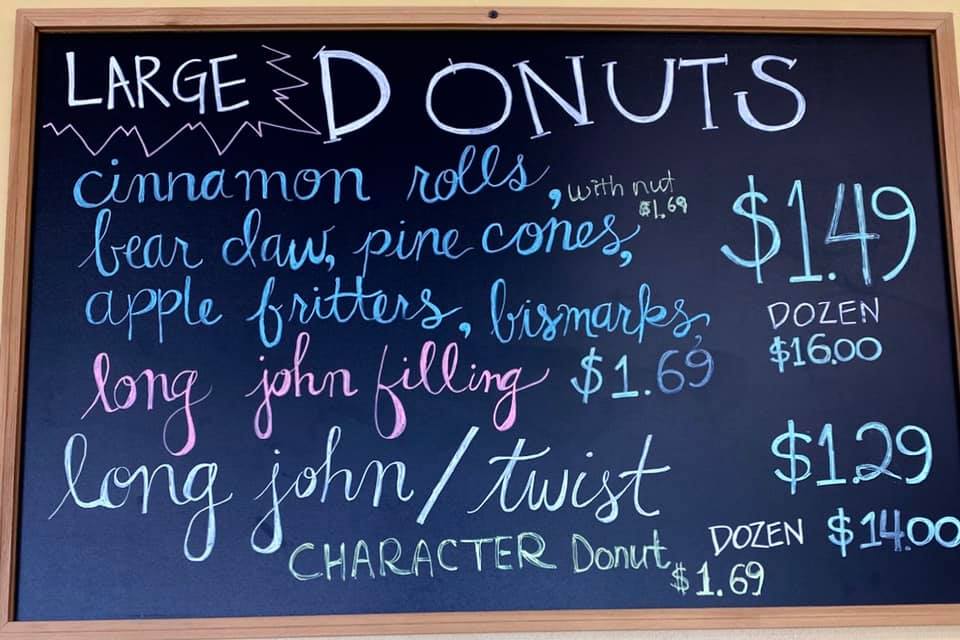 LARGE DONUTS
cinnamon rolls, with nut $1.69
bear claw, pine cones, $1.49
apple fritters, bismarks, DOZEN
$16.00
long john filling $1.69
long john/twist $1.29
DOZEN $14.00
CHARACTER Donut $1.69